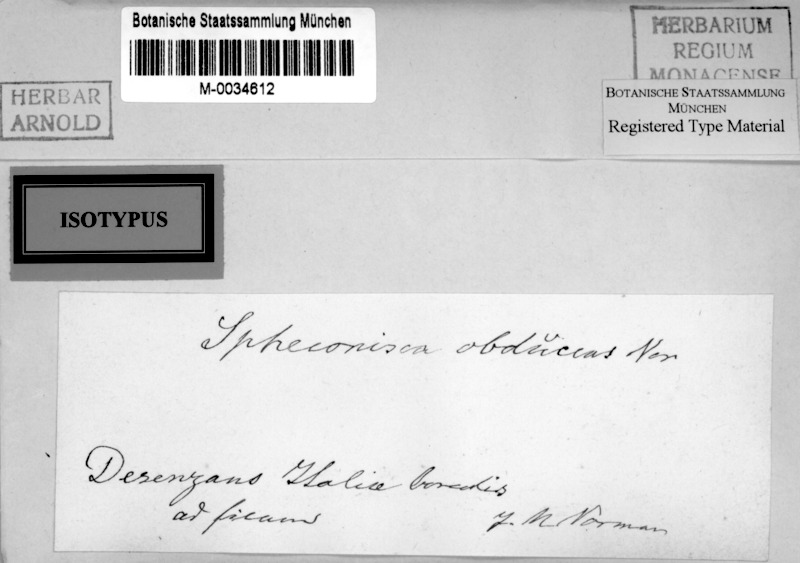 Botanische Staatssammlung München
M-0034612
HERBARIUM
REGIUM
MONACENSE
HERBAR
ARNOLD
BOTANISCHE STAATSSAMMLUNG
MÜNCHEN
Registered Type Material
ISOTYPUS
Spheconisca obducens Nor
Desenzano Italiæ borealis
ad ficum
J. M Norman